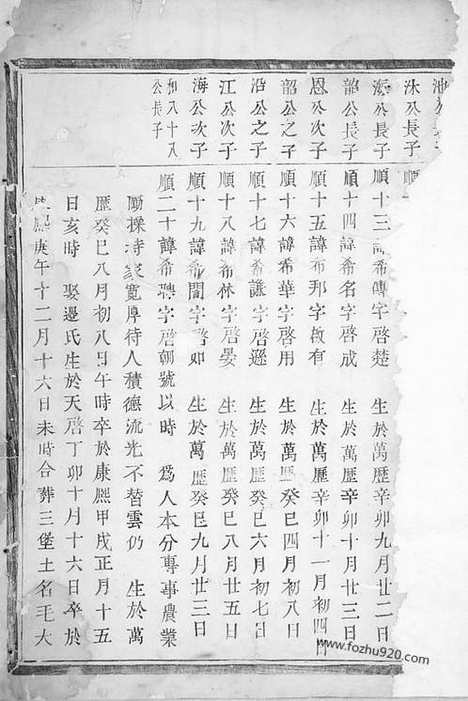 洙公長子 順
海公長子 順十三諱希傳字啓楚 生於萬歷辛卯九月廿二日
韶公長子 順十四諱希名字啓成 生於萬歷辛卯十月廿三日
恩公次子 順十五諱希邦字啟有 生於萬歷辛卯十一月初四
韶公之子 順十六諱希華字啓用 生於萬歷癸巳四月初八日
沿公之子 順十七諱希謙字啓遜 生於萬歷癸巳六月初七日
江公次子 順十八諱希林字啓晏 生於萬歷癸巳八月廿五日
海公次子 順十九諱希閏字啓卯 生於萬歷癸巳九月廿三日
和八十八公長子 順二十諱希聘字啓朝號以時 為人本分專事農業
厲操持家寬厚待人積德流光不替雲仍 生於萬
歷癸巳八月初八日午時卒於康熙甲戌正月十五
日亥時 娶邊氏生於天啓丁卯十月十六日卒於
康熙庚午十二月十六日未時合葬三堡土名毛大
www.fozhu920.com